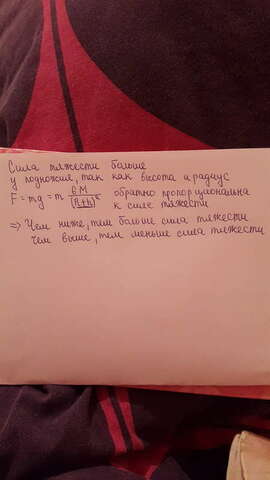 Сила тяжести больше
у подножия, так как высота и радиус
F = mg = m GM/(R+h)² обратно пропорциональна
к силе тяжести
⇒ Чем ниже, тем больше сила тяжести
Чем выше, тем меньше сила тяжести